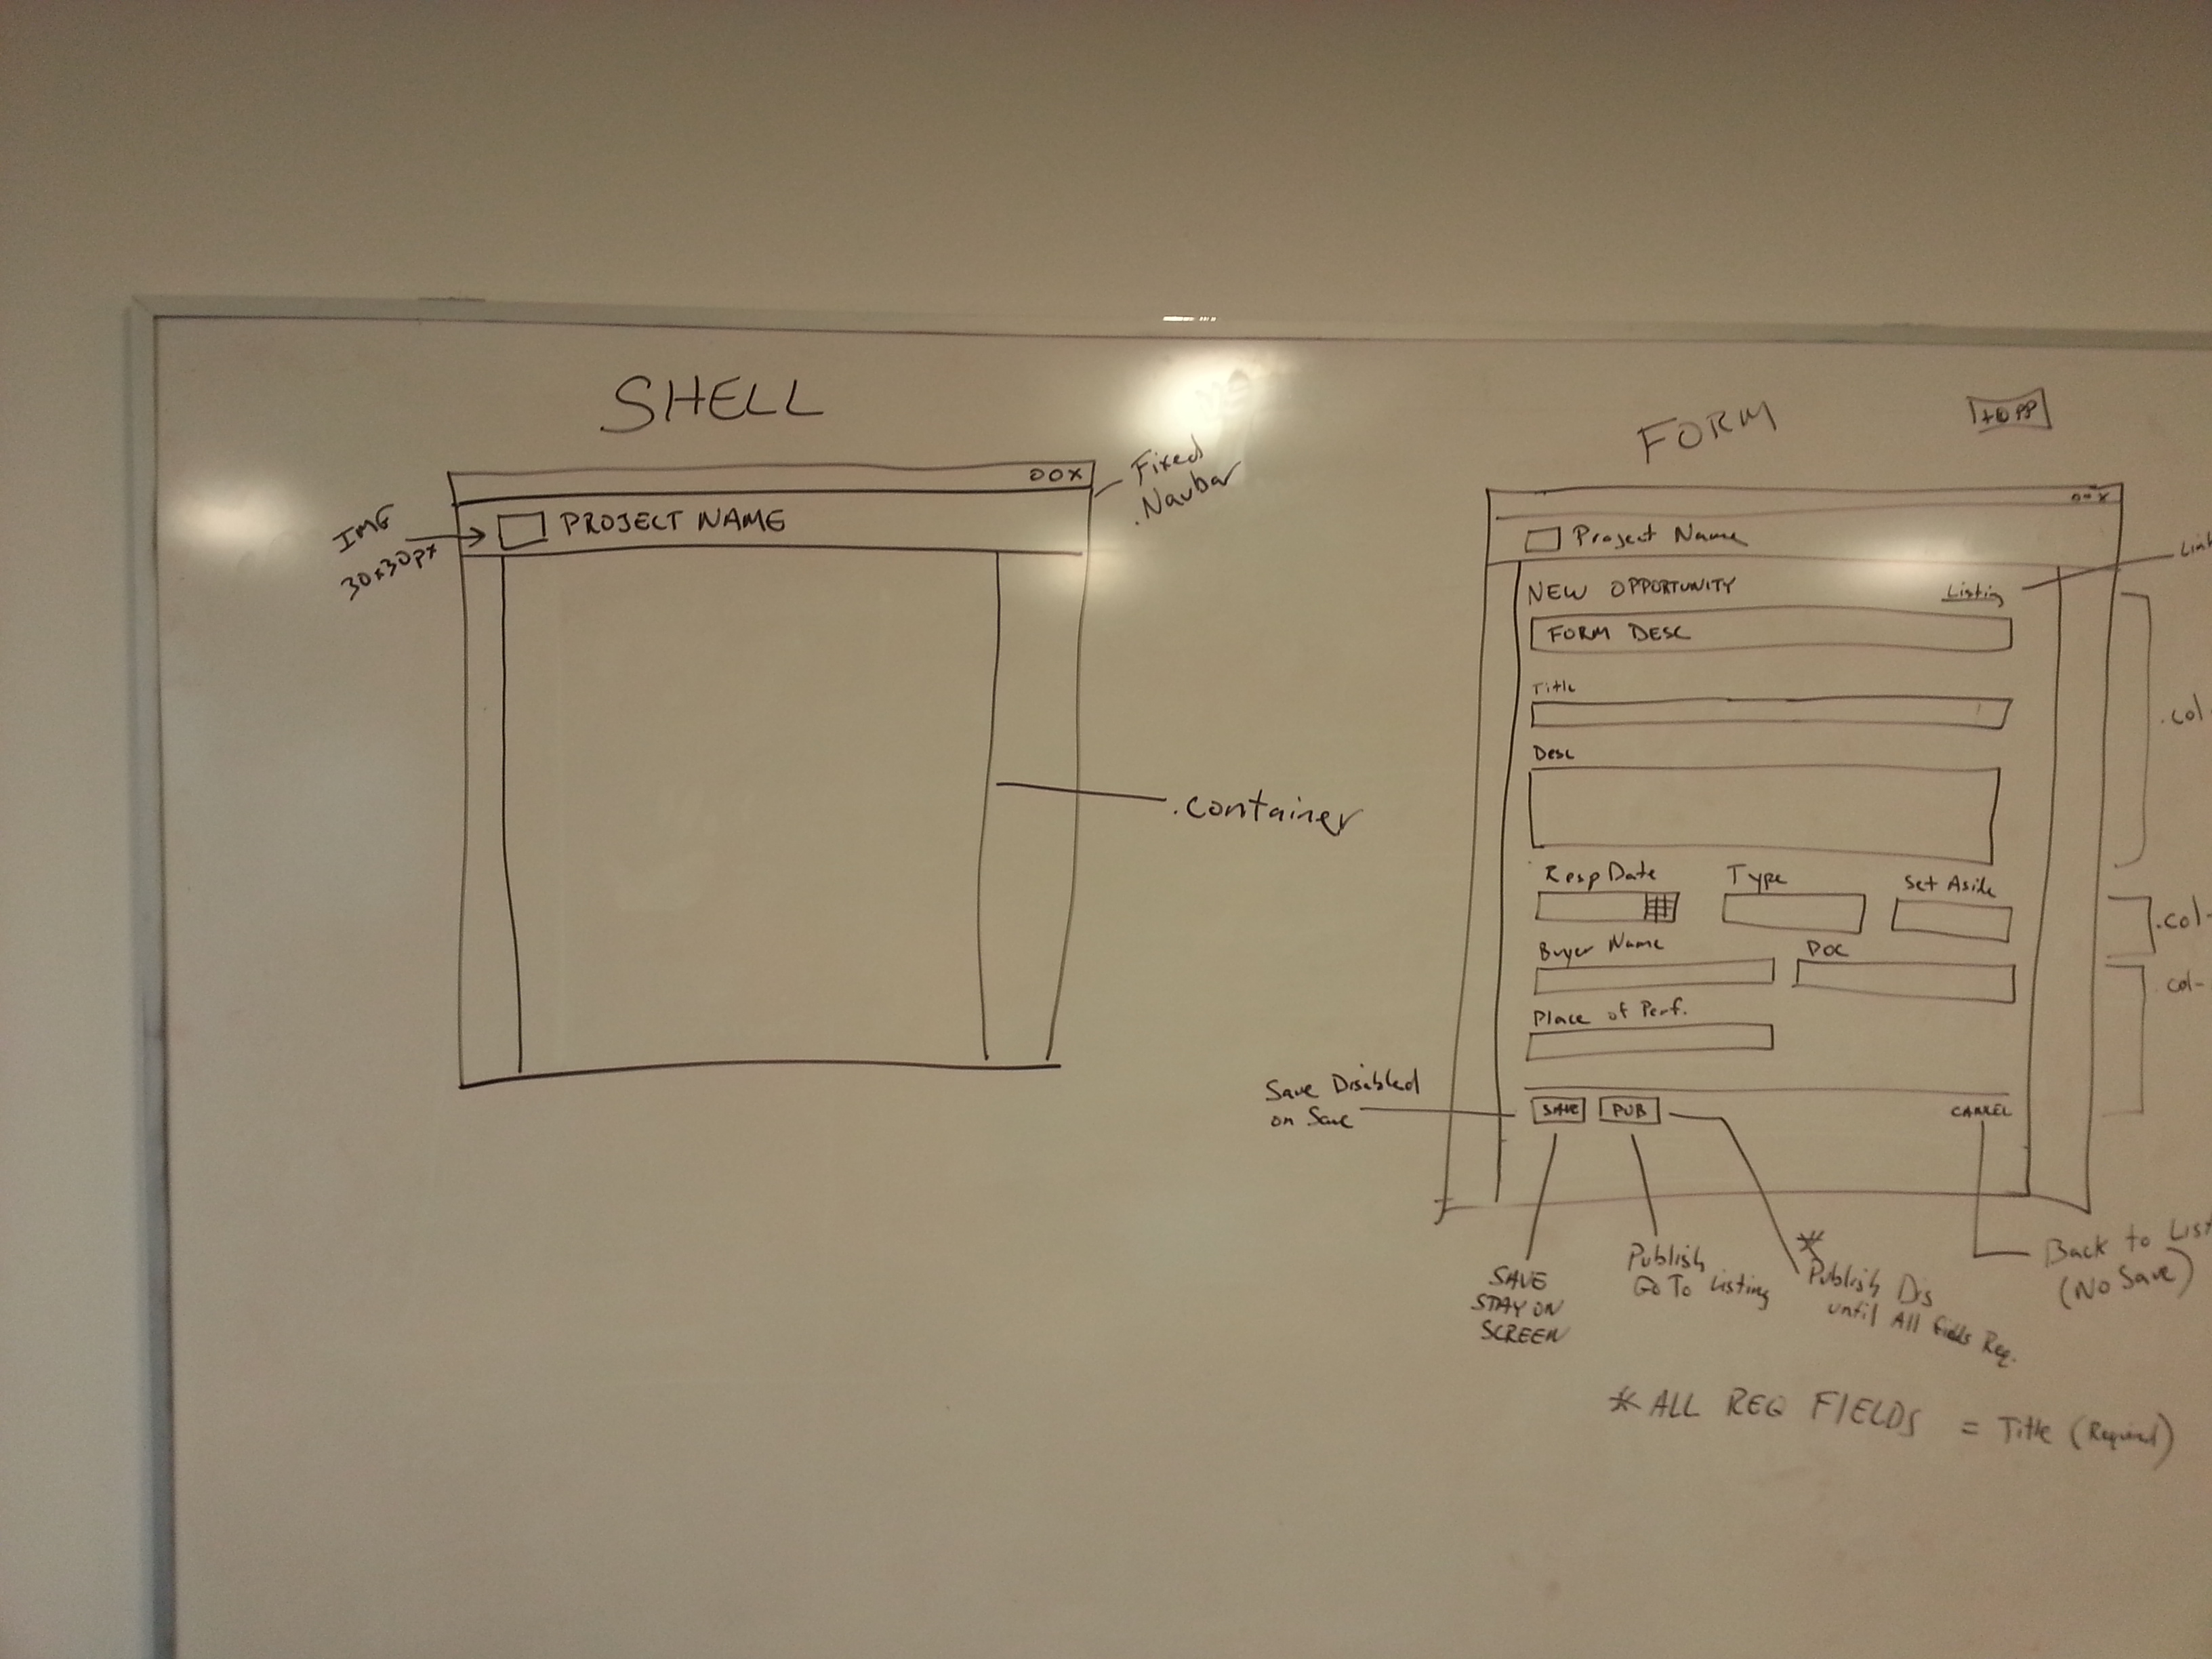 SHELL
OOX
Fixed
.Navbar
IMG
30x30px
PROJECT NAME
.container
FORM
+OPP
OOX
Project Name
NEW OPPORTUNITY
Listing
FORM DESC
Title
Desc
.col-
Resp Date
Type
Set Aside
.col-
Buyer Name
POC
col-
Place of Perf.
Save Disabled
on Save
SAVE
PUB
CANCEL
SAVE
STAY ON
SCREEN
Publish
Go To Listing
*
Publish Dis
until All fields Req.
Back to List
(No Save)
* ALL REQ FIELDS = Title (Required)